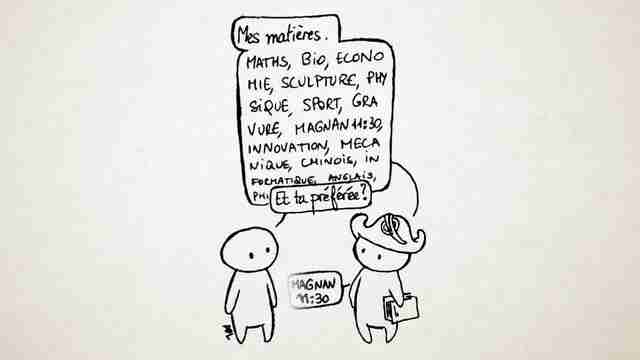 Mes matières.
MATHS, BIO, ECONO
MIE, SCULPTURE, PHY
SIQUE, SPORT, GRA
VURE, MAGNAN 11:30,
INNOVATION, MECA
NIQUE, CHINOIS, IN
FORMATIQUE, ANGLAIS,
PHI
Et ta préférée?
MAGNAN
11:30